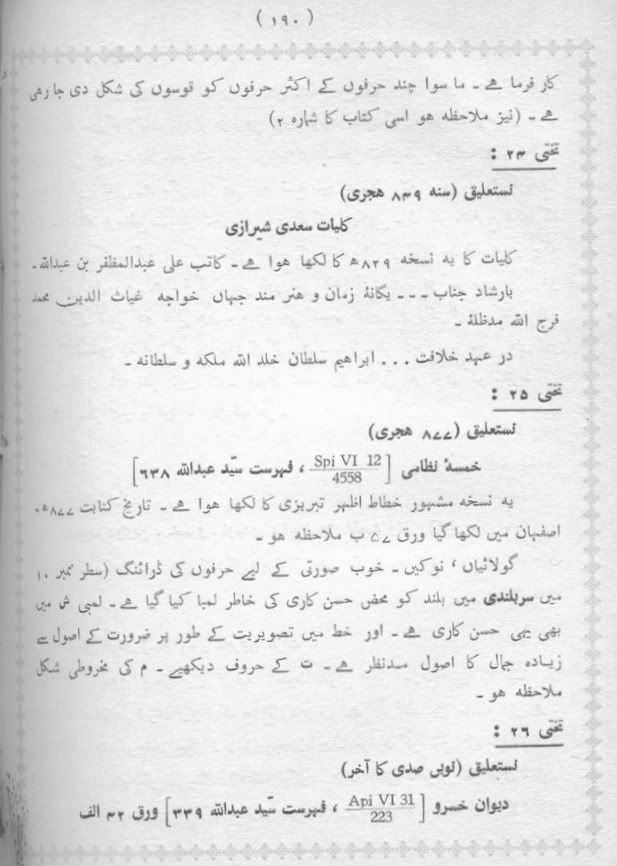 ( ۱۹۰ )
کار فرما ہے ۔ ما سوا چند حرفوں کے اکثر حرفوں کو قوسوں کی شکل دی جا رہی
ہے ۔ (نیز ملاحظہ ہو اسی کتاب کا شمارہ ۲)
تختی ۲۴ :
نستعلیق (سنہ ۸۳۹ ہجری)
کلیات سعدی شیرازی
کلیات کا یہ نسخہ ۸۲۹ھ کا لکھا ہوا ہے ۔ کاتب علی عبدالمظفر بن عبداللہ ۔
بارشاد جناب ۔ ۔ ۔ یگانۂ زمان و ہنر مند جہاں خواجہ غیاث الدین محمد
فرج اللہ مدظلہٗ ۔
در عہد خلافت . . . ابراہیم سلطان خلد اللہ ملکہ و سلطانہ ۔
تختی ۲۵ :
نستعلیق (۸۷۷ ہجری)
خمسۂ نظامی [ Spi VI 12 / 4558 ، فہرست سیّد عبداللہ ۶۳۸ ]
یہ نسخہ مشہور خطاط اظہر تبریزی کا لکھا ہوا ہے ۔ تاریخ کتابت ۸۷۷ھ ۔
اصفہان میں لکھا گیا ورق ۵۷ ب ملاحظہ ہو ۔
گولائیاں ، نوکیں ۔ خوب صورتی کے لیے حرفوں کی ڈرائنگ (سطر نمبر ۱۰
میں سربلندی میں بلند کو محض حسن کاری کی خاطر لمبا کیا گیا ہے ۔ لمبی ش میں
بھی یہی حسن کاری ہے ۔ اور خط میں تصویریت کے طور پر ضرورت کے اصول سے
زیادہ جمال کا اصول مدنظر ہے ۔ ت کے حروف دیکھیے ۔ م کی مخروطی شکل
ملاحظہ ہو ۔
تختی ۲۶ :
نستعلیق (نویں صدی کا آخر)
دیوان خسرو [ Api VI 31 / 223 ، فہرست سیّد عبداللہ ۳۳۹ ] ورق ۴۲ الف